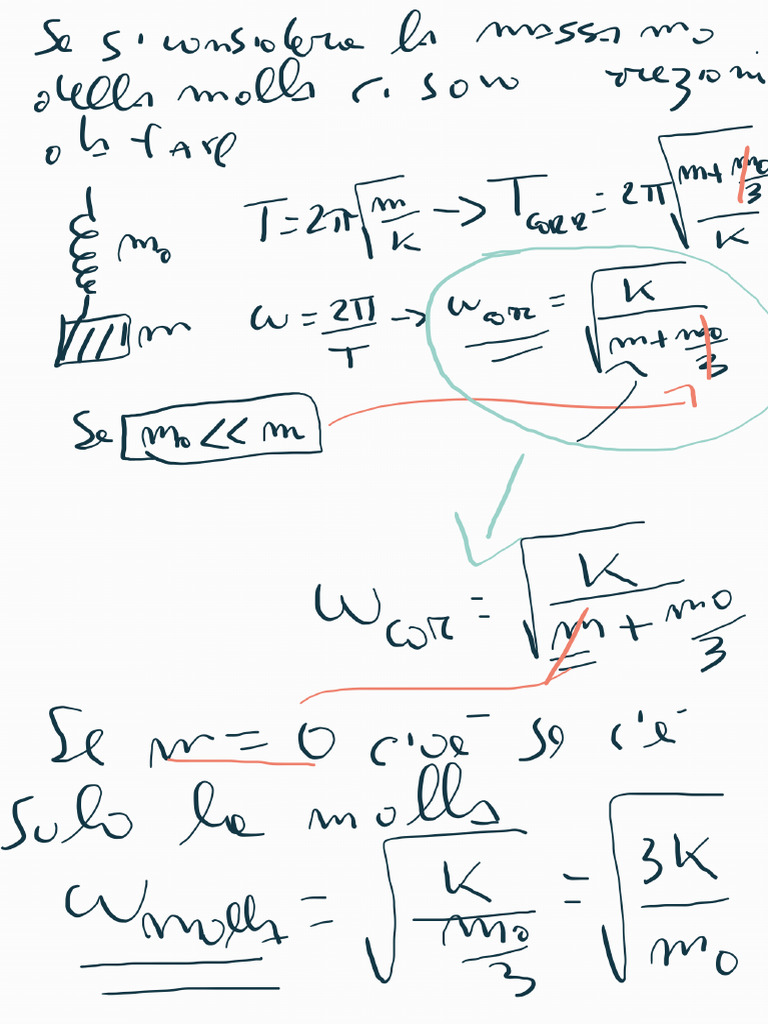 Se si considera la massa m₀
della molla ci sono
da fare
T = 2π√(m/K) → T_corr = 2π√((m + m₀/3)/K)
m₀
ω = 2π/T → ω_cor = √(K/(m + m₀/3))
m
Se m₀ << m
ω_cor = √(K/(m + m₀/3))
Se m = 0 cioè se c'è
solo la molla
ω_molla = √(K/(m₀/3)) = √(3K/m₀)